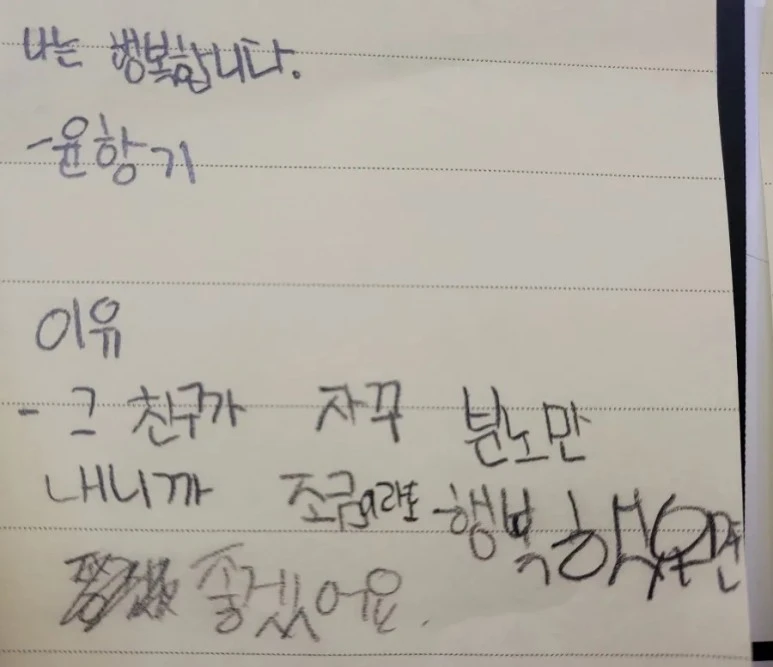 나는 행복합니다.
-윤항기
이유
- 그 친구가 자꾸 분노만
내니까 조금이라도 행복했으면
좋겠어요.